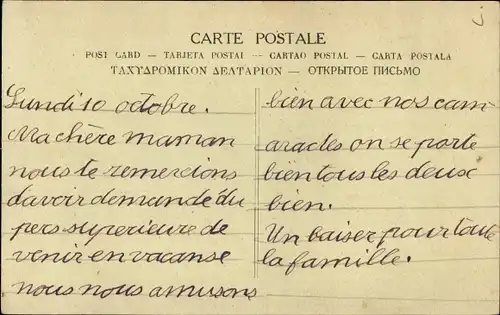 CARTE POSTALE
POST CARD — TARJETA POSTAL — CARTAO POSTAL — CARTA POSTALA
ΤΑΧΥΔΡΟΜΙΚΟΝ ΔΕΛΤΑΡΙΟΝ — ОТКРЫТОЕ ПИСЬМО
Lundi 10 octobre.
Ma chère maman
nous te remercions
d'avoir demandé du
pers superieure de
venir en vacanse
nous nous amusons
bien avec nos cam
arades on se porte
bien tous les deux
bien.
Un baiser pour toute
la famille.